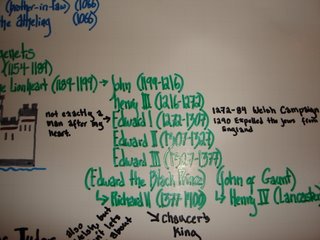 (brother-in-law) (1066)
the atheling (1066)
genets
(1154-1189)
the Lionheart (1189-1199) → John (1199-1216)
Henry III (1216-1272)
Edward I (1272-1307)
Edward II (1307-1327)
Edward III (1327-1377)
(Edward the Black Prince) (John of Gaunt)
↳ Richard II (1377-1400) ↳ Henry IV (Lancaster)
not exactly a
man after my
heart.
1272-84 Welsh Campaign
1290 Expelled the Jews from
England
↘ Chaucer's
King
also
but
lets
about